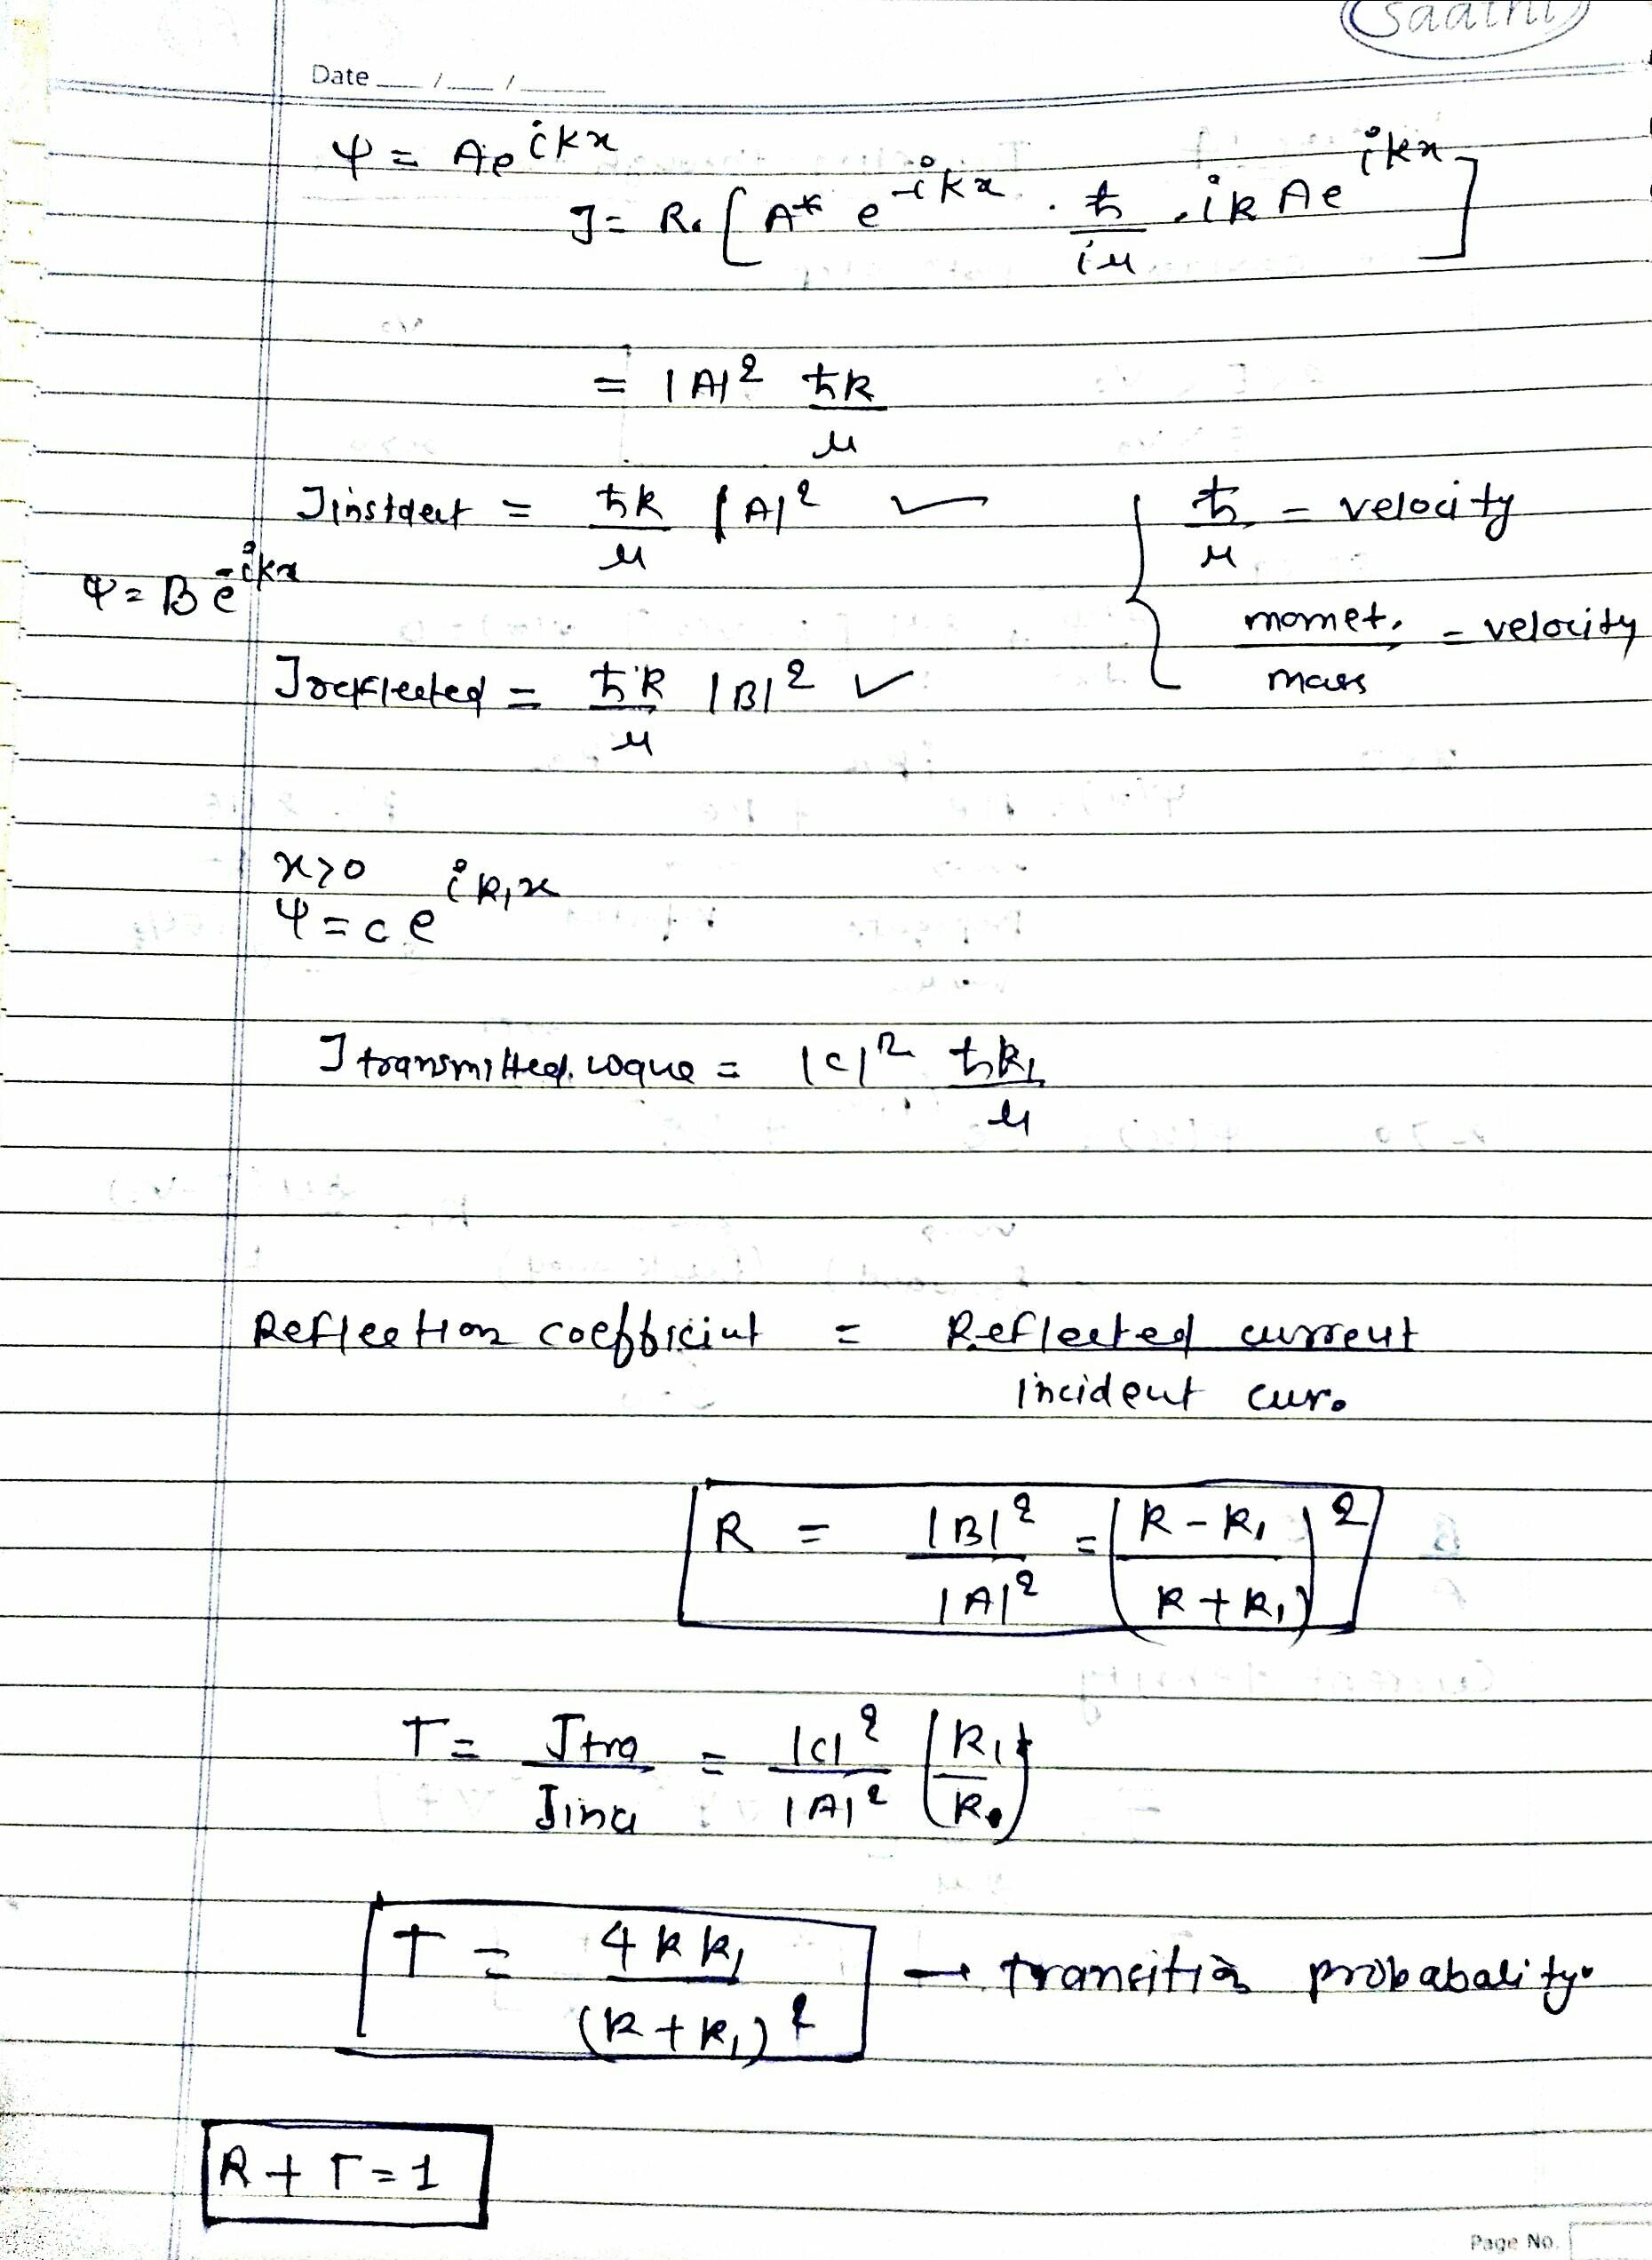 Saathi
Date __/__/__
ψ = Ae^{ikx}
J = Re [ A* e^{-ikx} . ħ/iμ . ik Ae^{ikx} ]
= |A|² ħk/μ
Jinstdect = ħk/μ |A|² ✓
{ ħ/μ = velocity
ψ = B e^{-ikx}
momet./mass = velocity
Jreflected = ħk/μ |B|² ✓
x>0
ψ = c e^{ik₁x}
J transmitted. waque = |c|² ħk₁/μ
Reflection coefficiut = Reflected current / incident cur.
R = |B|²/|A|² = (k - k₁ / k + k₁)²
T = Jtra/Jinci = |c|²/|A|² (k₁/k)
T = 4kk₁/(k+k₁)² → transition probabality.
R + T = 1
Page No.